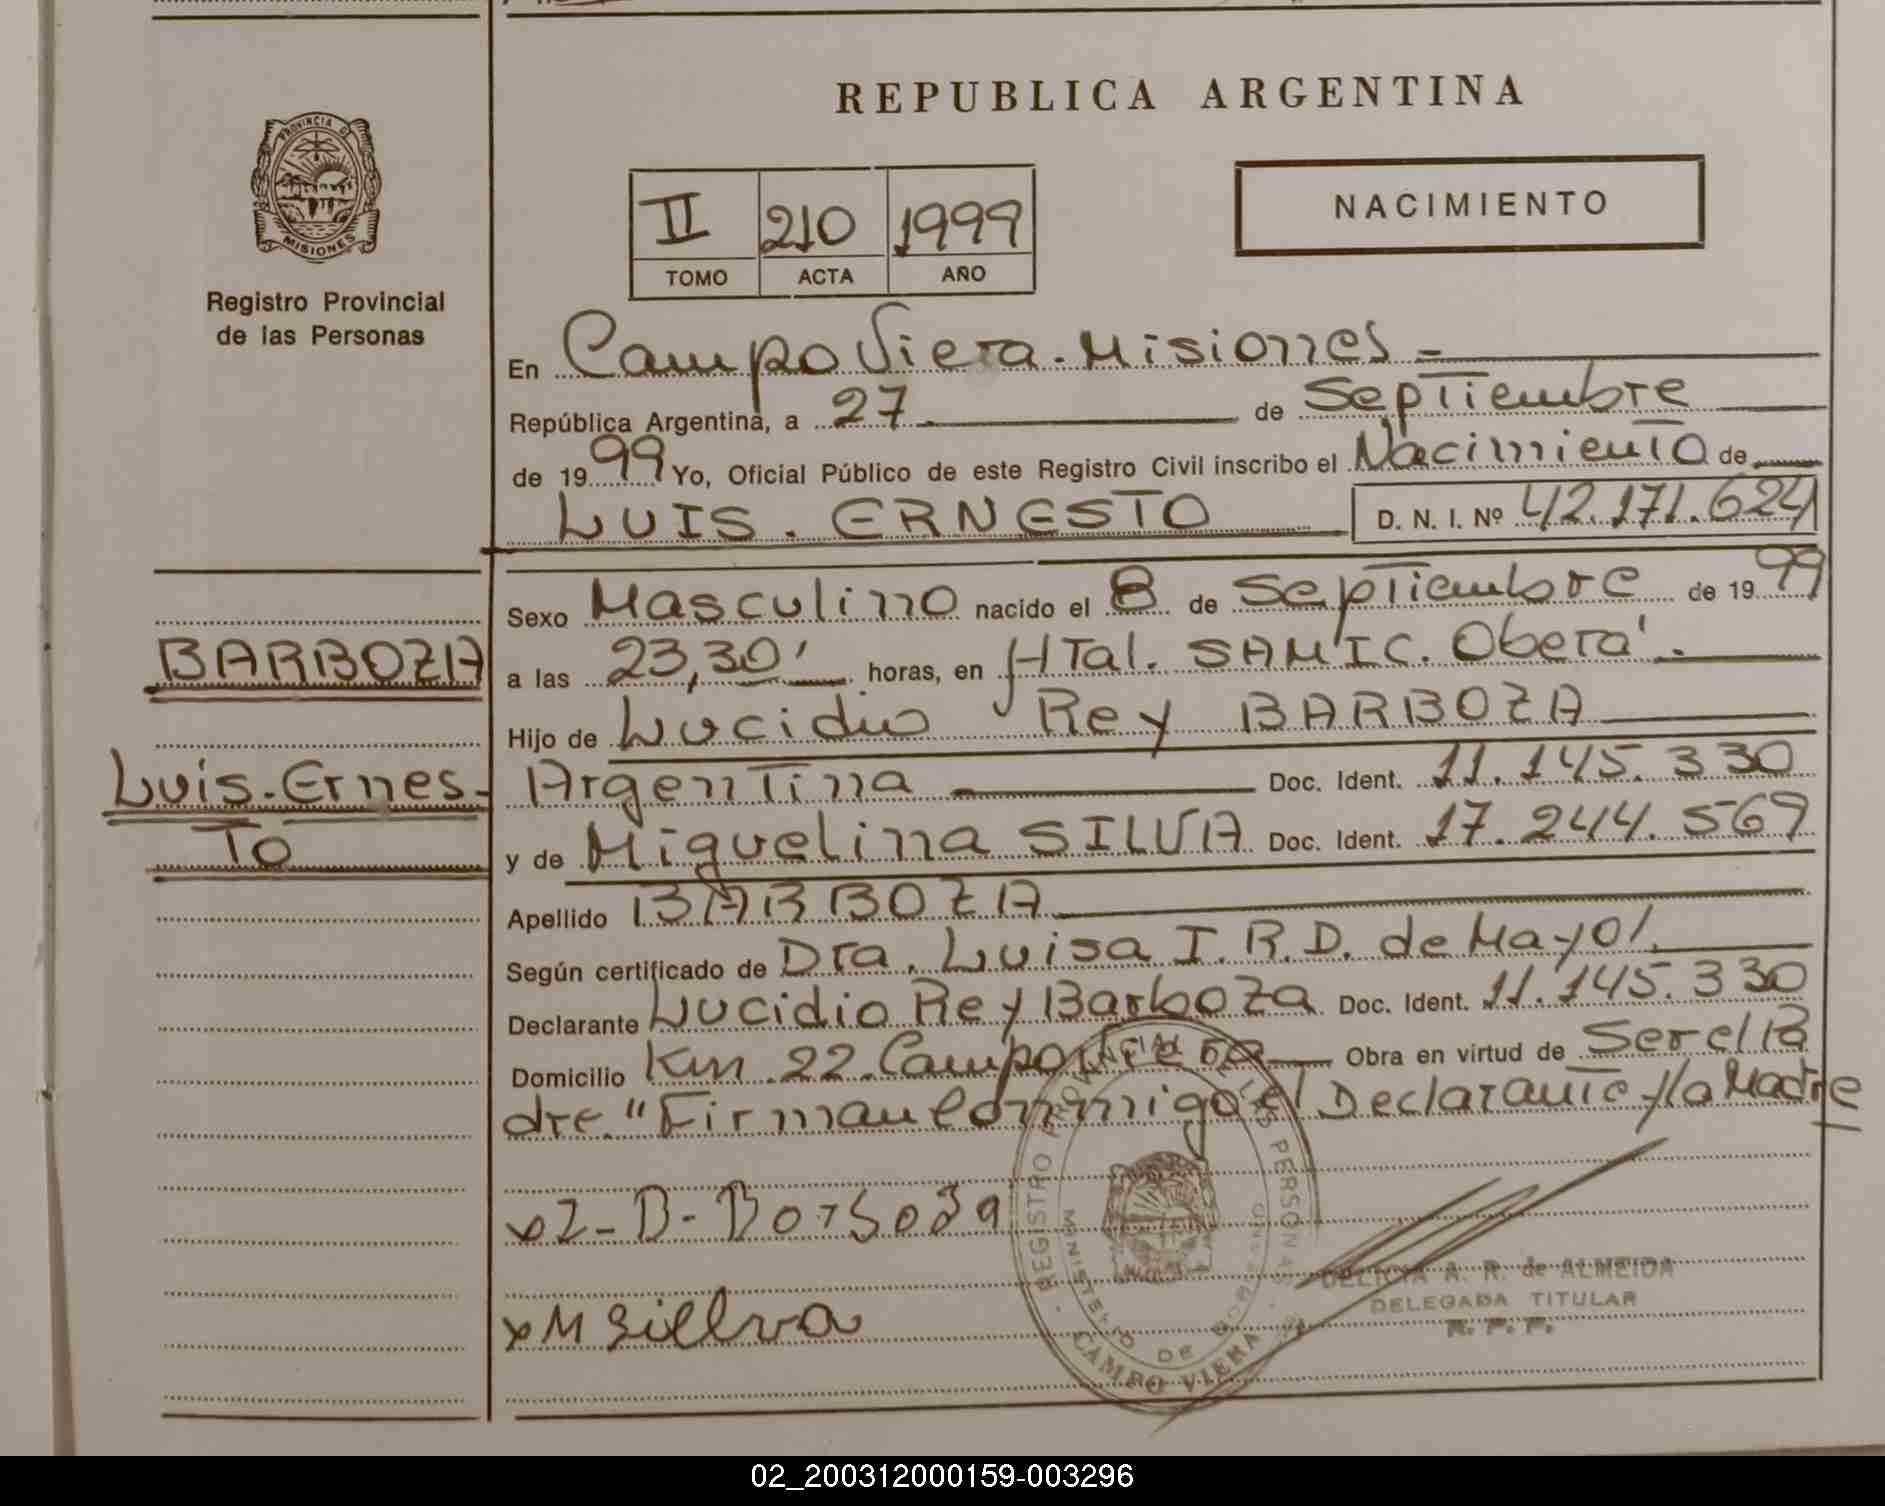 REPUBLICA ARGENTINA
PROVINCIA DE
MISIONES
Registro Provincial
de las Personas
II 210 1999
TOMO ACTA AÑO
NACIMIENTO
En Campo Viera - Misiones =
República Argentina, a 27 de Septiembre
de 1999 Yo, Oficial Público de este Registro Civil inscribo el Nacimiento de
LUIS. ERNESTO D. N. I. Nº 42.171.624
Sexo Masculino nacido el 8 de Septiembre de 1999
BARBOZA
a las 23,30' horas, en HTal. SAMIC. Oberá.
Hijo de Lucidio Rey BARBOZA
Luis-Ernes-
To
Argentina Doc. Ident. 11.145.330
y de Miguelina SILVA Doc. Ident. 17.244.569
Apellido BARBOZA
Según certificado de Dra. Luisa I.R.D. de Mayol.
Declarante Lucidio Rey Barboza Doc. Ident. 11.145.330
Domicilio Km. 22. Campo Viera Obra en virtud de Ser el Pa
dre. "Firman Conmigo el Declarante y la Madre
REGISTRO PROVINCIAL DE LAS PERSONAS
MINISTERIO DE GOBIERNO
CAMPO VIERA
x M Sillva
DELICIA A. R. de ALMEIDA
DELEGADA TITULAR
R. P. P.
02_200312000159-003296